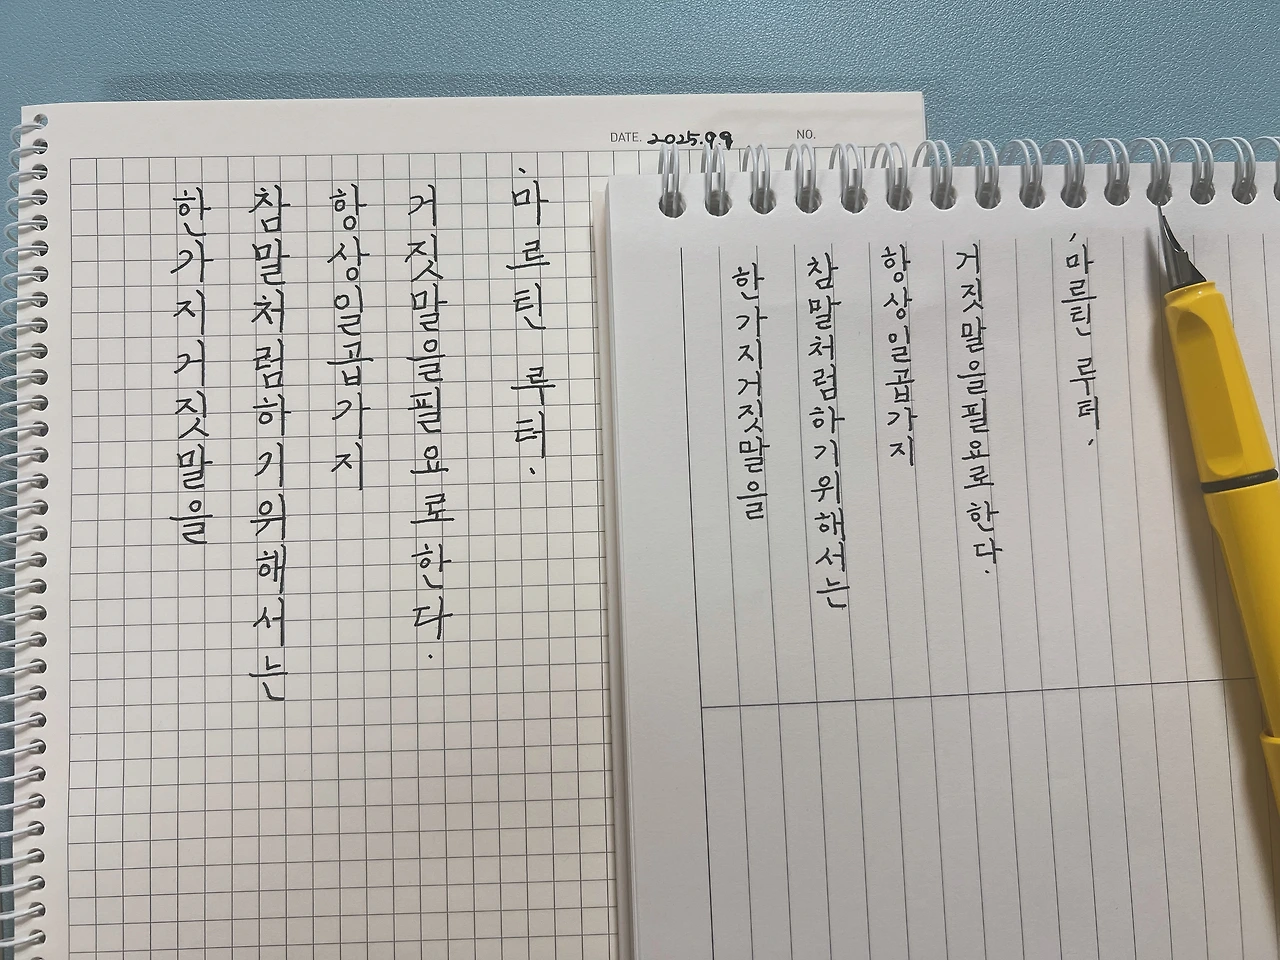 DATE. 2025.9.9
NO.
한가지거짓말을
참말처럼하기위해서는
항상일곱가지
거짓말을필요로한다.
·마르틴 루터.
한가지거짓말을
참말처럼하기위해서는
항상일곱가지
거짓말을필요로한다.
·마르틴 루터.